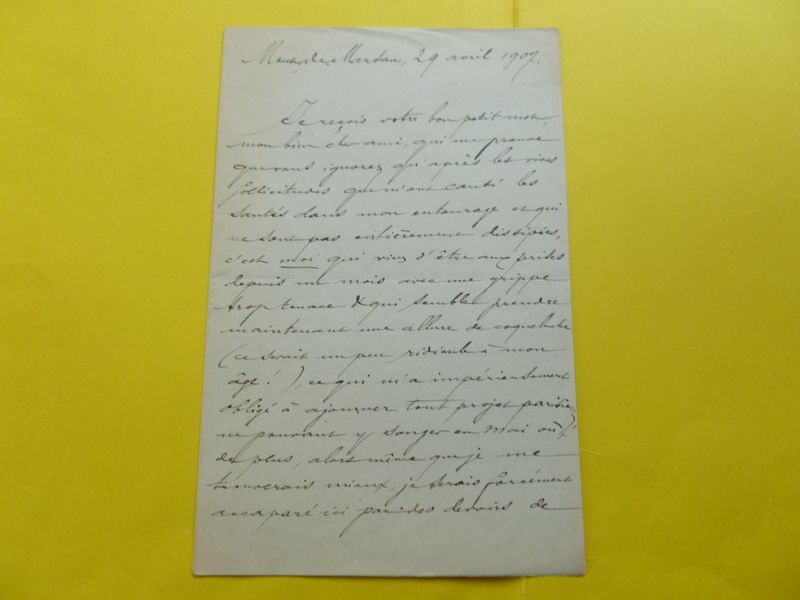 Mont-de-Marsan, 29 avril 1907.
Je reçois votre bon petit mot,
mon bien cher ami, qui me prouve
que vous ignorez qu'après les vives
sollicitudes que m'ont causé les
santés dans mon entourage et qui
ne sont pas entièrement dissipées,
c'est moi qui viens d'être aux prises
depuis un mois avec une grippe
trop tenace & qui semble prendre
maintenant une allure de coqueluche
(ce serait un peu ridicule à mon
âge!), ce qui m'a impérieusement
obligé à ajourner tout projet parisien,
ne pouvant y songer en Mai où,
de plus, alors même que je me
trouverais mieux, je serais forcément
accaparé ici par des devoirs de